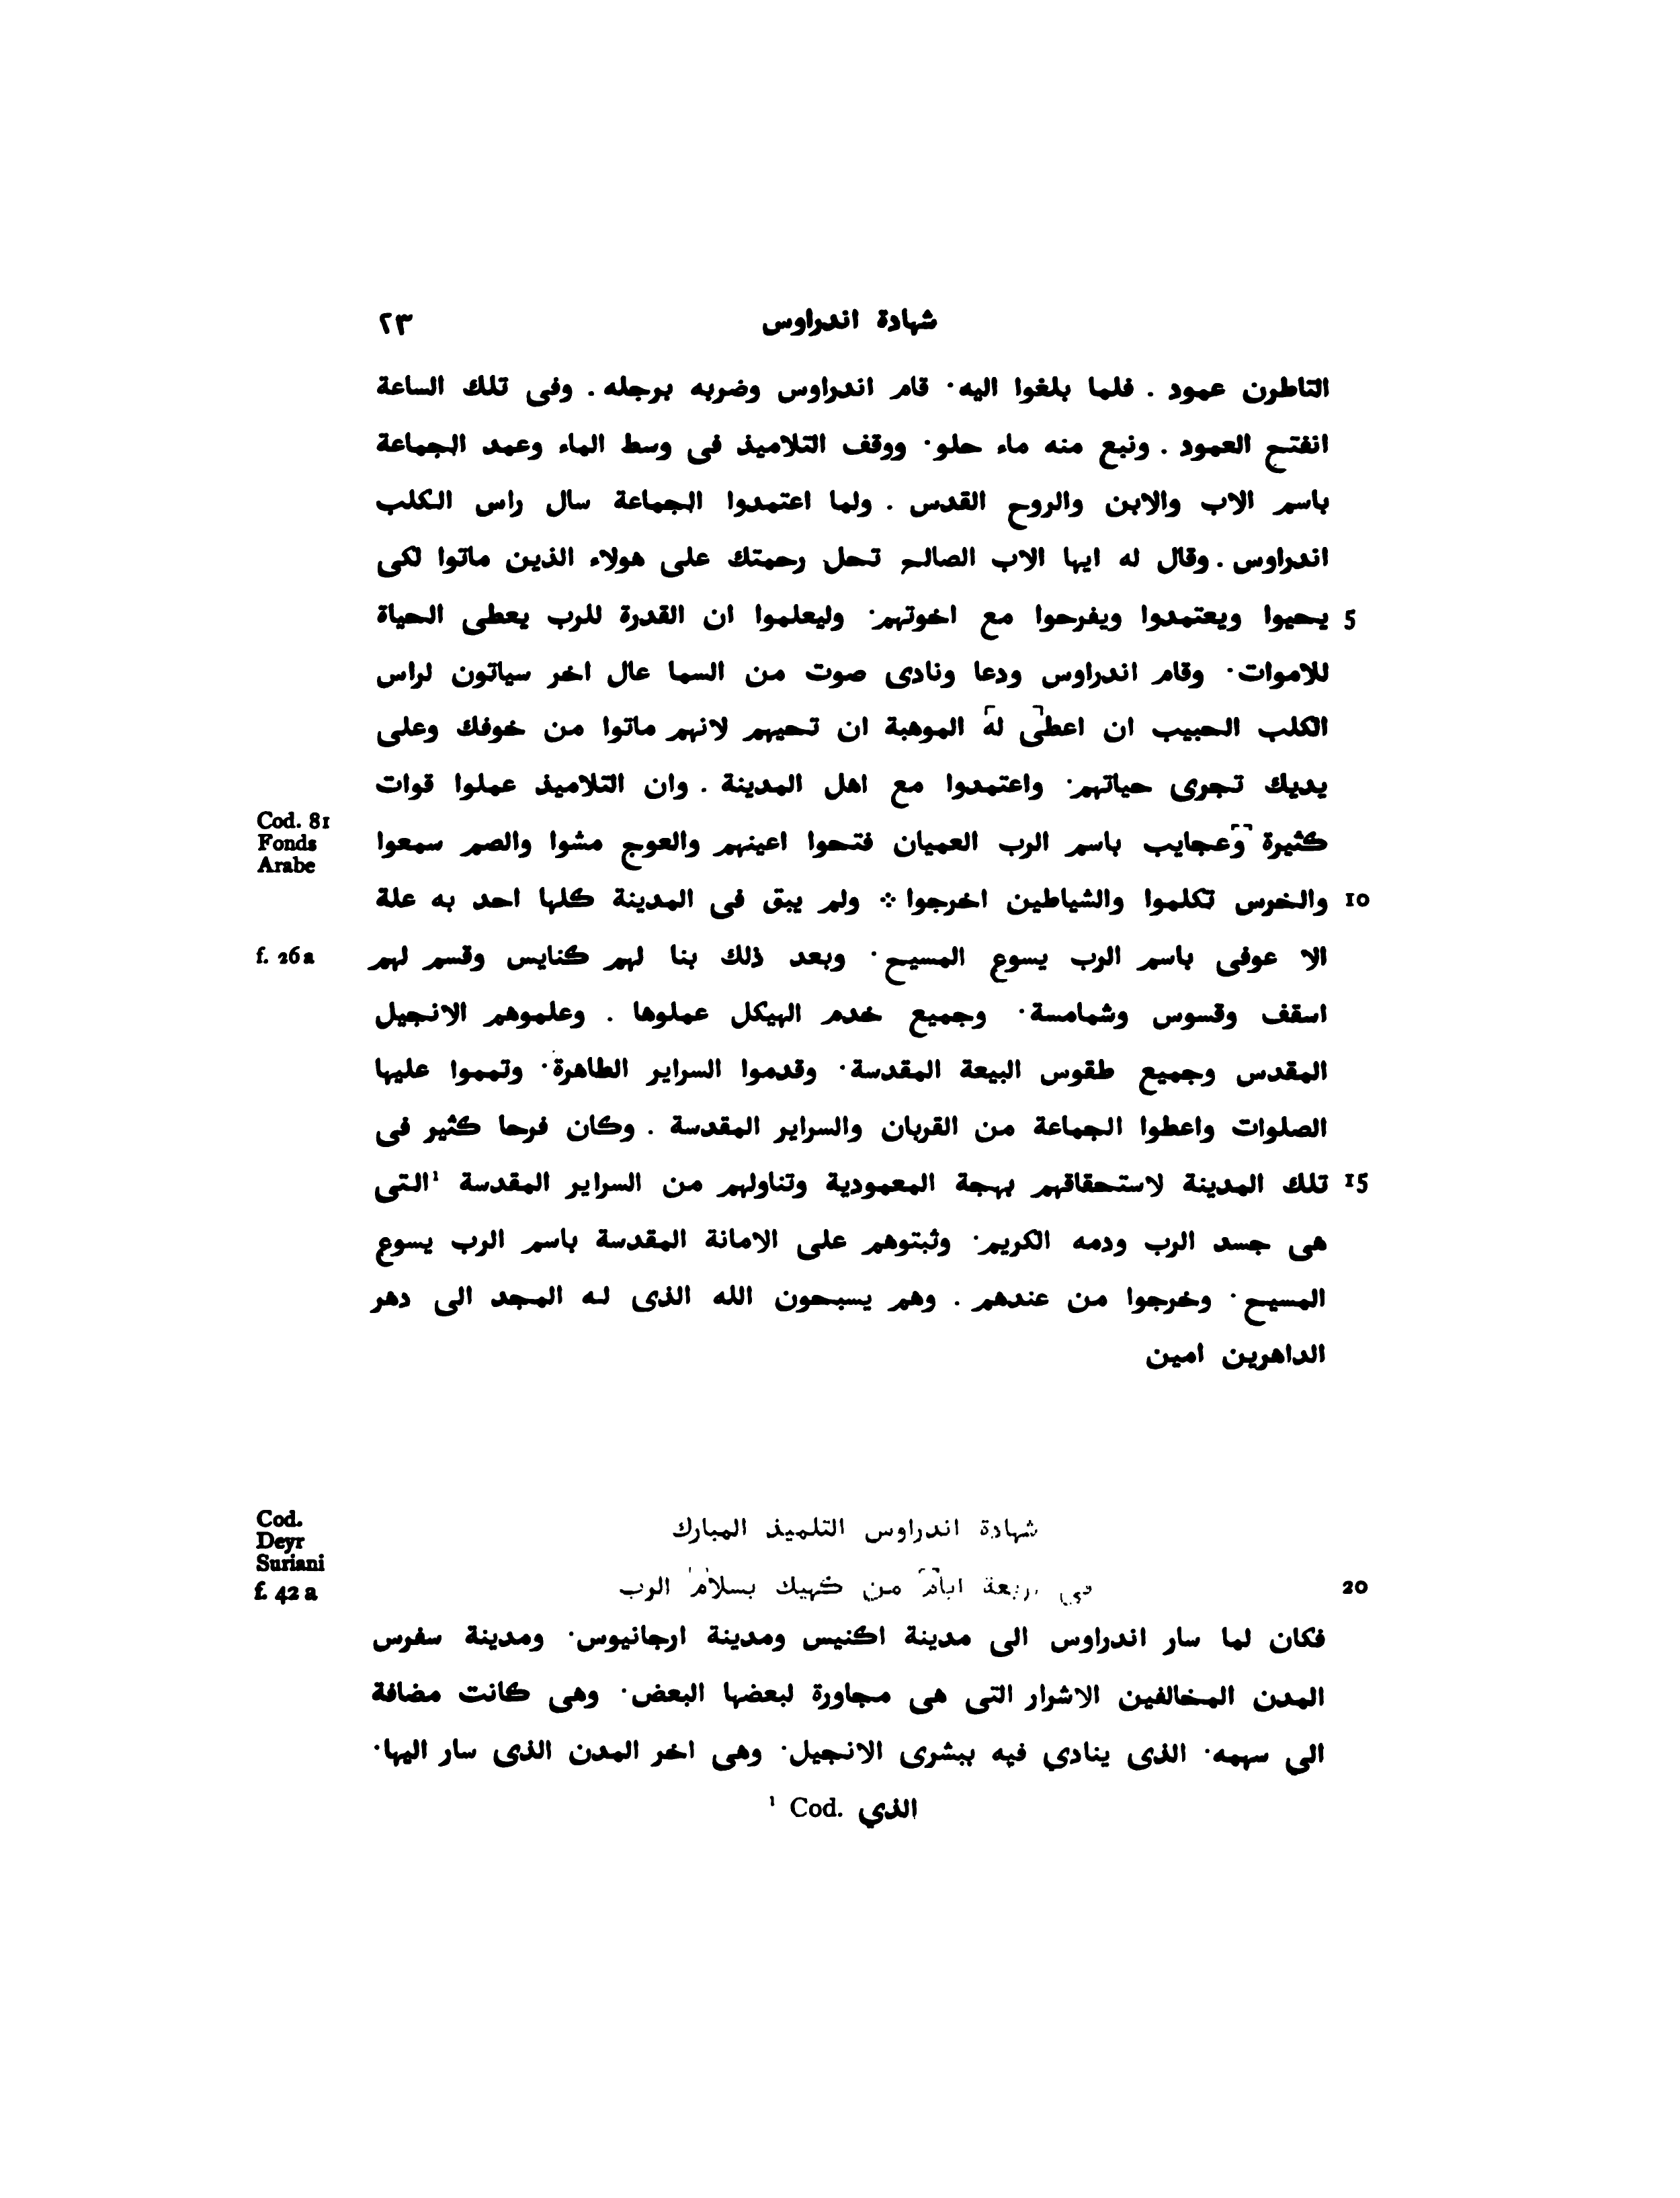 شهادة اندراوس ٢٣
التاطرن عمود . فلما بلغوا اليه· قام اندراوس وضربه برجله . وفى تلك الساعة
انفتح العمود . ونبع منه ماء حلو· ووقف التلاميذ فى وسط الماء وعمد الجماعة
باسم الاب والابن والروح القدس . ولما اعتمدوا الجماعة سال راس الكلب
اندراوس . وقال له ايها الاب الصالح تحل رحمتك على هولاء الذين ماتوا لكى
5 يحيوا ويعتمدوا ويفرحوا مع اخوتهم· وليعلموا ان القدرة للرب يعطى الحياة
للاموات· وقام اندراوس ودعا ونادى صوت من السما عال اخر سياتون لراس
الكلب الحبيب ان اعطى ⌜له⌝ الموهبة ان تحييهم لانهم ماتوا من خوفك وعلى
يديك تجرى حياتهم· واعتمدوا مع اهل المدينة . وان التلاميذ عملوا قوات
Cod. 81
Fonds
Arabe
كثيرة ⌜و⌝عجايب باسم الرب العميان فتحوا اعينهم والعوج مشوا والصم سمعوا
10 والخرس تكلموا والشياطين اخرجوا ܀ ولم يبق فى المدينة كلها احد به علة
f. 26a الا عوفى باسم الرب يسوع المسيح· وبعد ذلك بنا لهم كنايس وقسم لهم
اسقف وقسوس وشمامسة· وجميع خدم الهيكل عملوها . وعلموهم الانجيل
المقدس وجميع طقوس البيعة المقدسة· وقدموا السراير الطاهرة· وتمموا عليها
الصلوات واعطوا الجماعة من القربان والسراير المقدسة . وكان فرحا كثير فى
15 تلك المدينة لاستحقاقهم بهجة المعمودية وتناولهم من السراير المقدسة ¹التى
هى جسد الرب ودمه الكريم· وثبتوهم على الامانة المقدسة باسم الرب يسوع
المسيح· وخرجوا من عندهم . وهم يسبحون الله الذى له المجد الى دهر
الداهرين امين
Cod.
Deyr
Suriani
f. 42 a
شهادة اندراوس التلميذ المبارك
20 في اربعة ايا⌜م⌝ من كهيك بسلا⌜م⌝ الرب
فكان لما سار اندراوس الى مدينة اكنيس ومدينة ارجانيوس· ومدينة سفرس
المدن المخالفين الاشرار التى هى مجاورة لبعضها البعض· وهى كانت مضافة
الى سهمه· الذى ينادي فيه ببشرى الانجيل· وهى اخر المدن الذى سار اليها·
¹ Cod. الذي